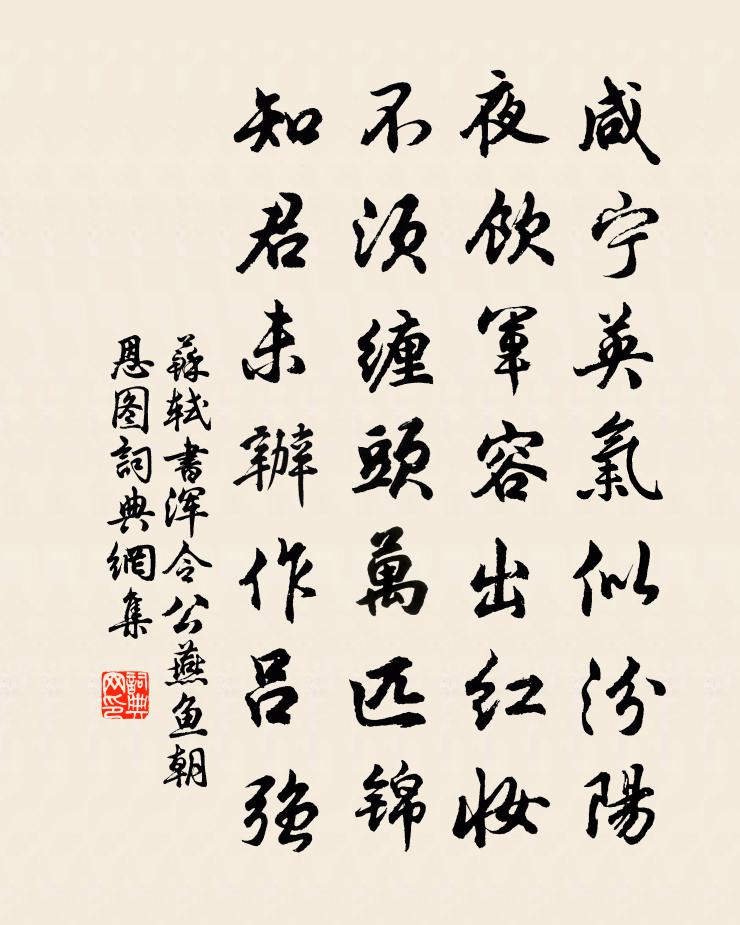 咸宁英氣似汾陽
夜飲軍容出红妆
不须缠頭萬匹锦
知君未辦作吕強
蘇軾書渾令公燕鱼朝
恩图詞典網集
詞典网印